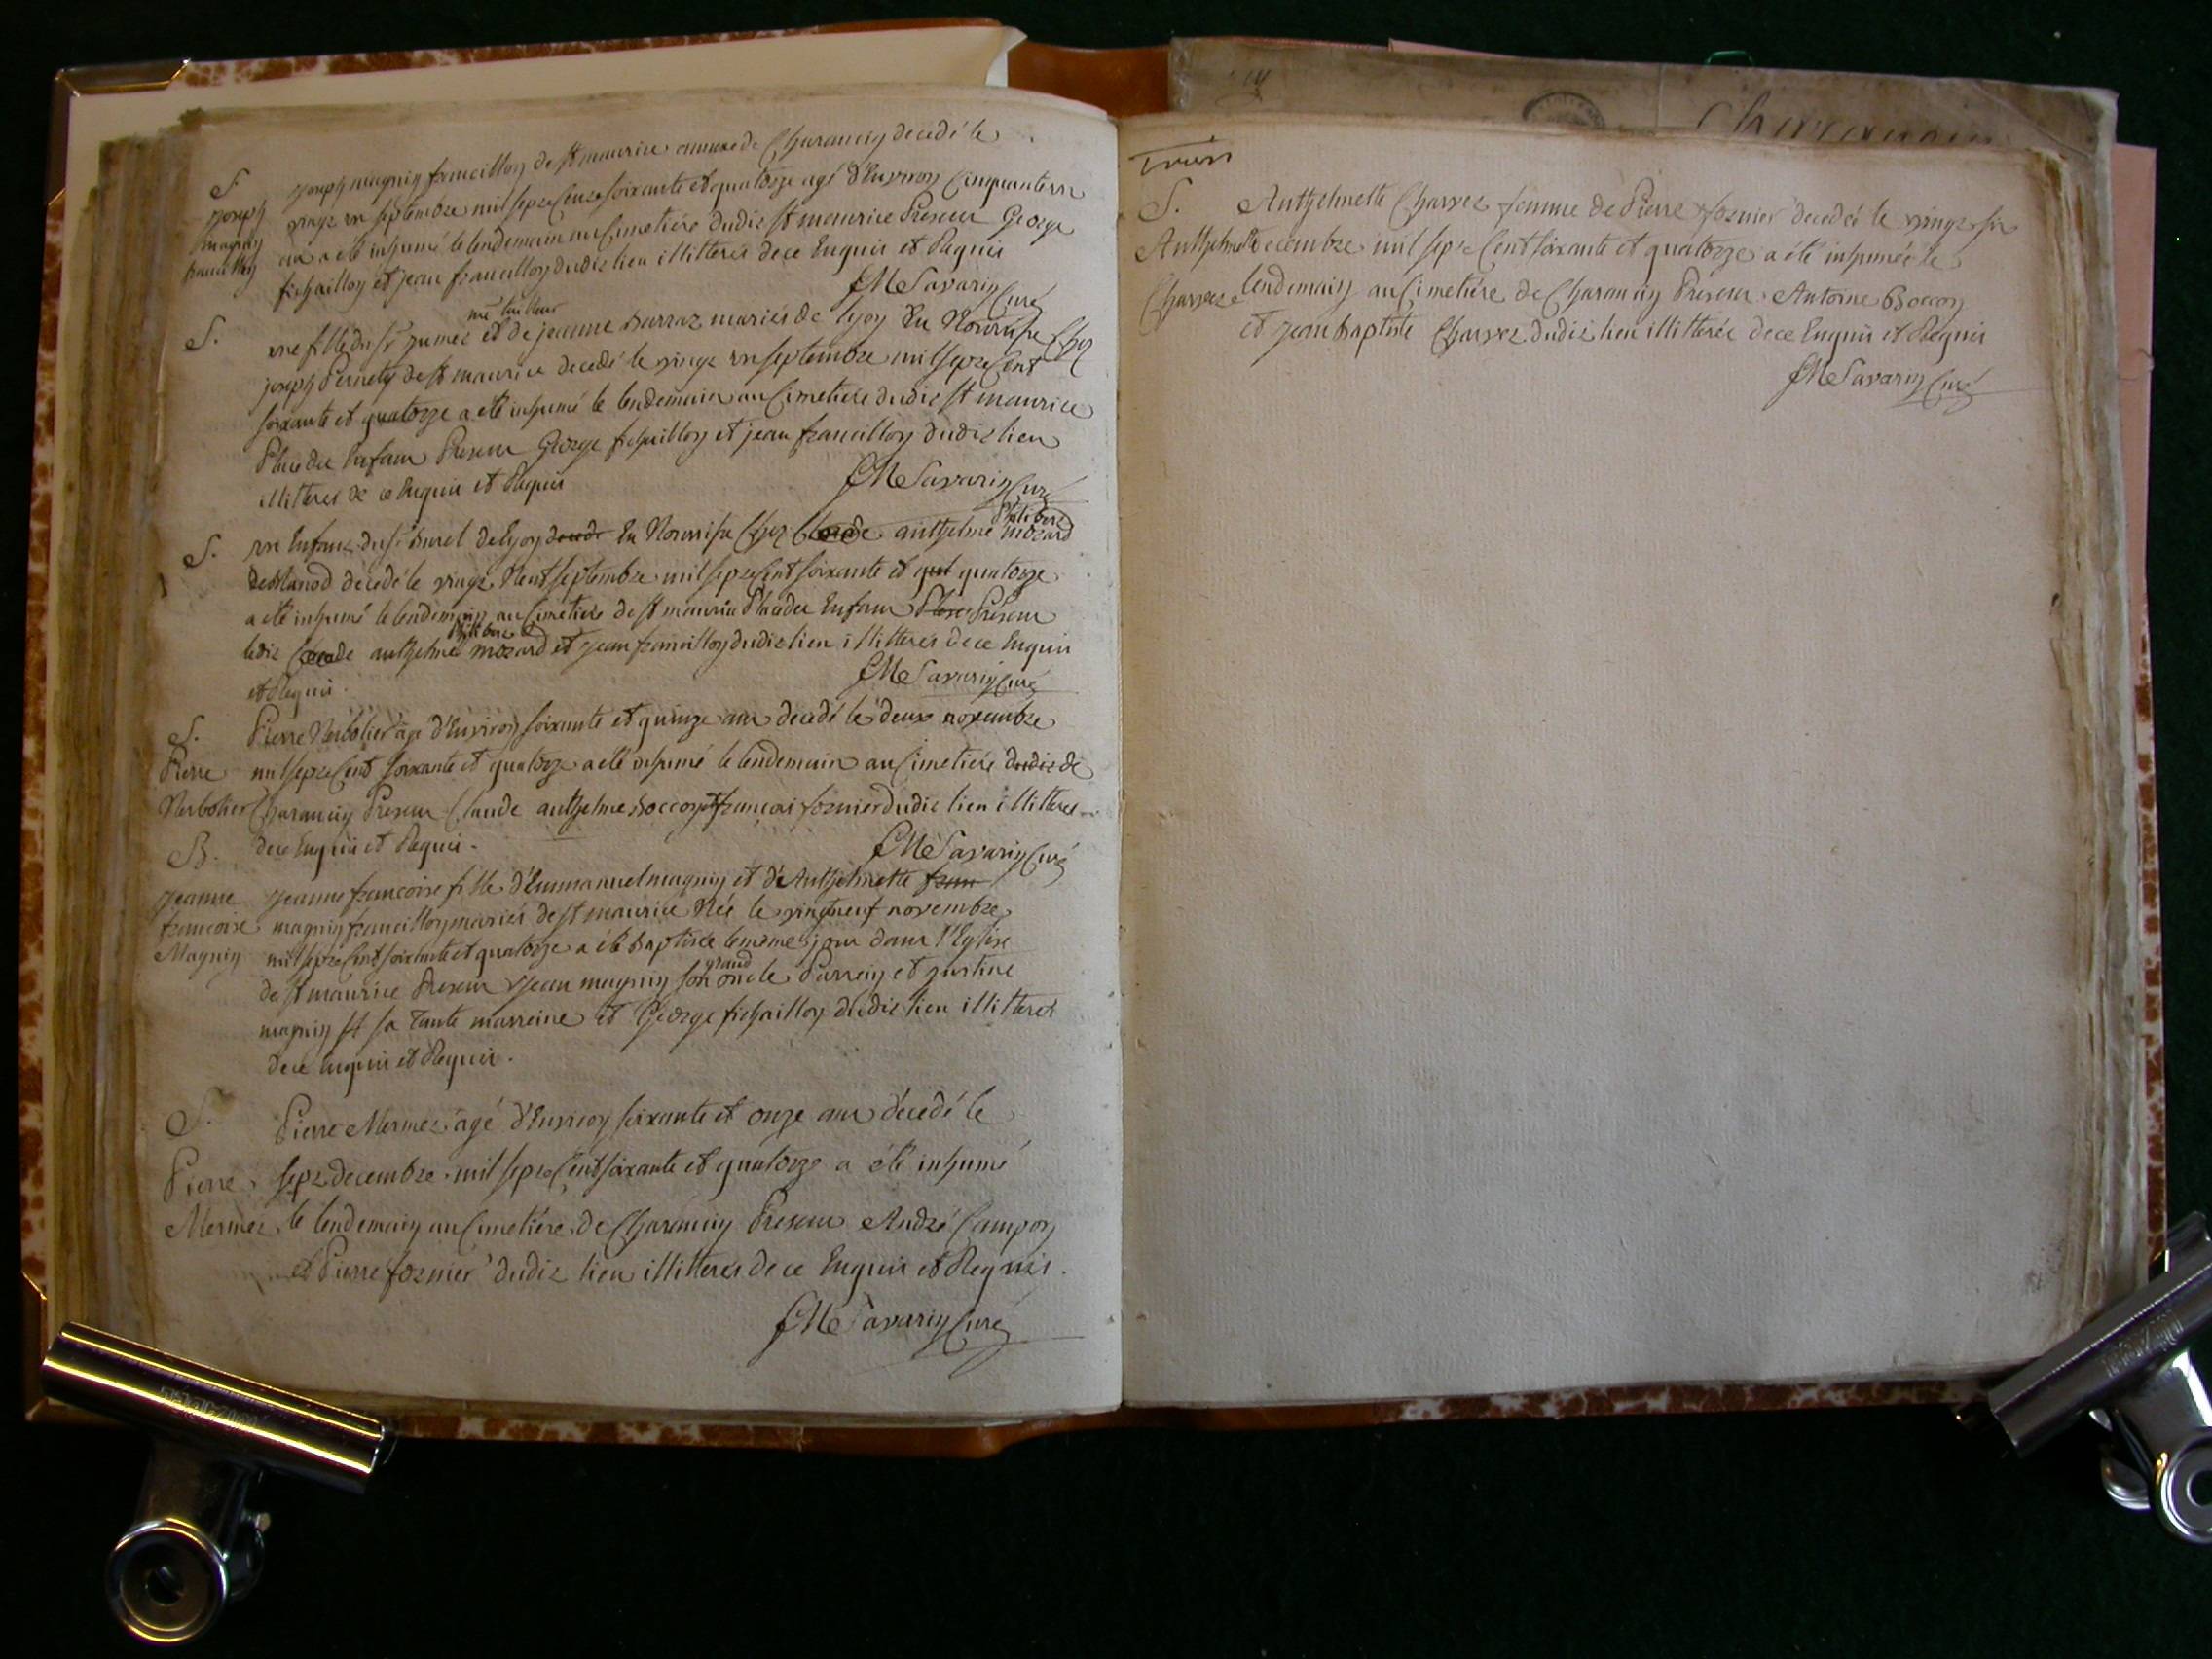 S Joseph magnin francillon de st maurice annexe de Charancin decedé le
Joseph vingt un septembre mil sept cent soixante et quatorze agé d'Environ Cinquante un
magnin ans a eté inhumé le lendemain au Cimetiére dudit st maurice Presens George
francillon fichaillon et jean francillon dudit lieu illitterés de ce Enquis et Requis
JM Savarin Curé
me tailleur
S. une fille du sr jumes et de jeanne barraz mariés de lyon En Nourrise Chez
joseph Pernety de st maurice decedé le vingt un septembre mil sept Cent
soixante et quatorze a eté inhumé le lendemain au Cimetiére dudit st maurice
Place des Enfans Presens George fichaillon et jean francillon dudit lieu
illitterés de ce Enquis et Requis
JM Savarin Curé
Philibert
S. un Enfant du sr burel de lyon En Nourrise Chez Claude anthelme mozard
decedé le vingt Neuf septembre mil sept Cent soixante et quatorze
a eté inhumé le lendemain au Cimetiére de st maurice Place des Enfans Presens
Philibert
ledit Claude anthelme mozard et jean francillon dudit lieu illitterés de ce Enquis
et Requis.
JM Savarin Curé
S. Pierre Nerbolier âgé d'Environ soixante et quinze ans decedé le deux novembre
Pierre mil sept Cent soixante et quatorze a eté inhumé le lendemain au Cimetiére dudit de
Nerbolier Charancin Presens Claude anthelme boccon et françois fornier dudit lieu illitterés
de ce Enquis et Requis.
JM Savarin Curé
B.
Jeanne Jeanne francoise fille d'Emmanuel magnin et d'Anthelmette fran
francoise magnin francillon mariés de st maurice Née le vingt neuf novembre
Magnin mil sept Cent soixante et quatorze a été baptisée le même jour dans l'Eglise
grand
de st maurice Presens Jean magnin son oncle Parrein et justine
magnin sa Tante marreine et George fichaillon dudit lieu illitterés
de ce Enquis et Requis.
S. Pierre Mermet âgé d'Environ soixante et onze ans décedé le
Pierre sept decembre mil sept Cent soixante et quatorze a été inhumé
Mermet le lendemain au Cimetiére de Charancin Presens André Campon
et Pierre fornier dudit lieu illitterés de ce Enquis et Requis.
JM Savarin Curé
Trois
S. Anthelmette Charvet femme de Pierre fornier decedée le vingt six
Anthelmette decembre mil sept Cent soixante et quatorze a été inhumée le
Charvet lendemain au Cimetiére de Charancin Presens Antoine Boccon
et jean baptiste Charvet dudit lieu illitterés de ce Enquis et Requis
JM Savarin Curé